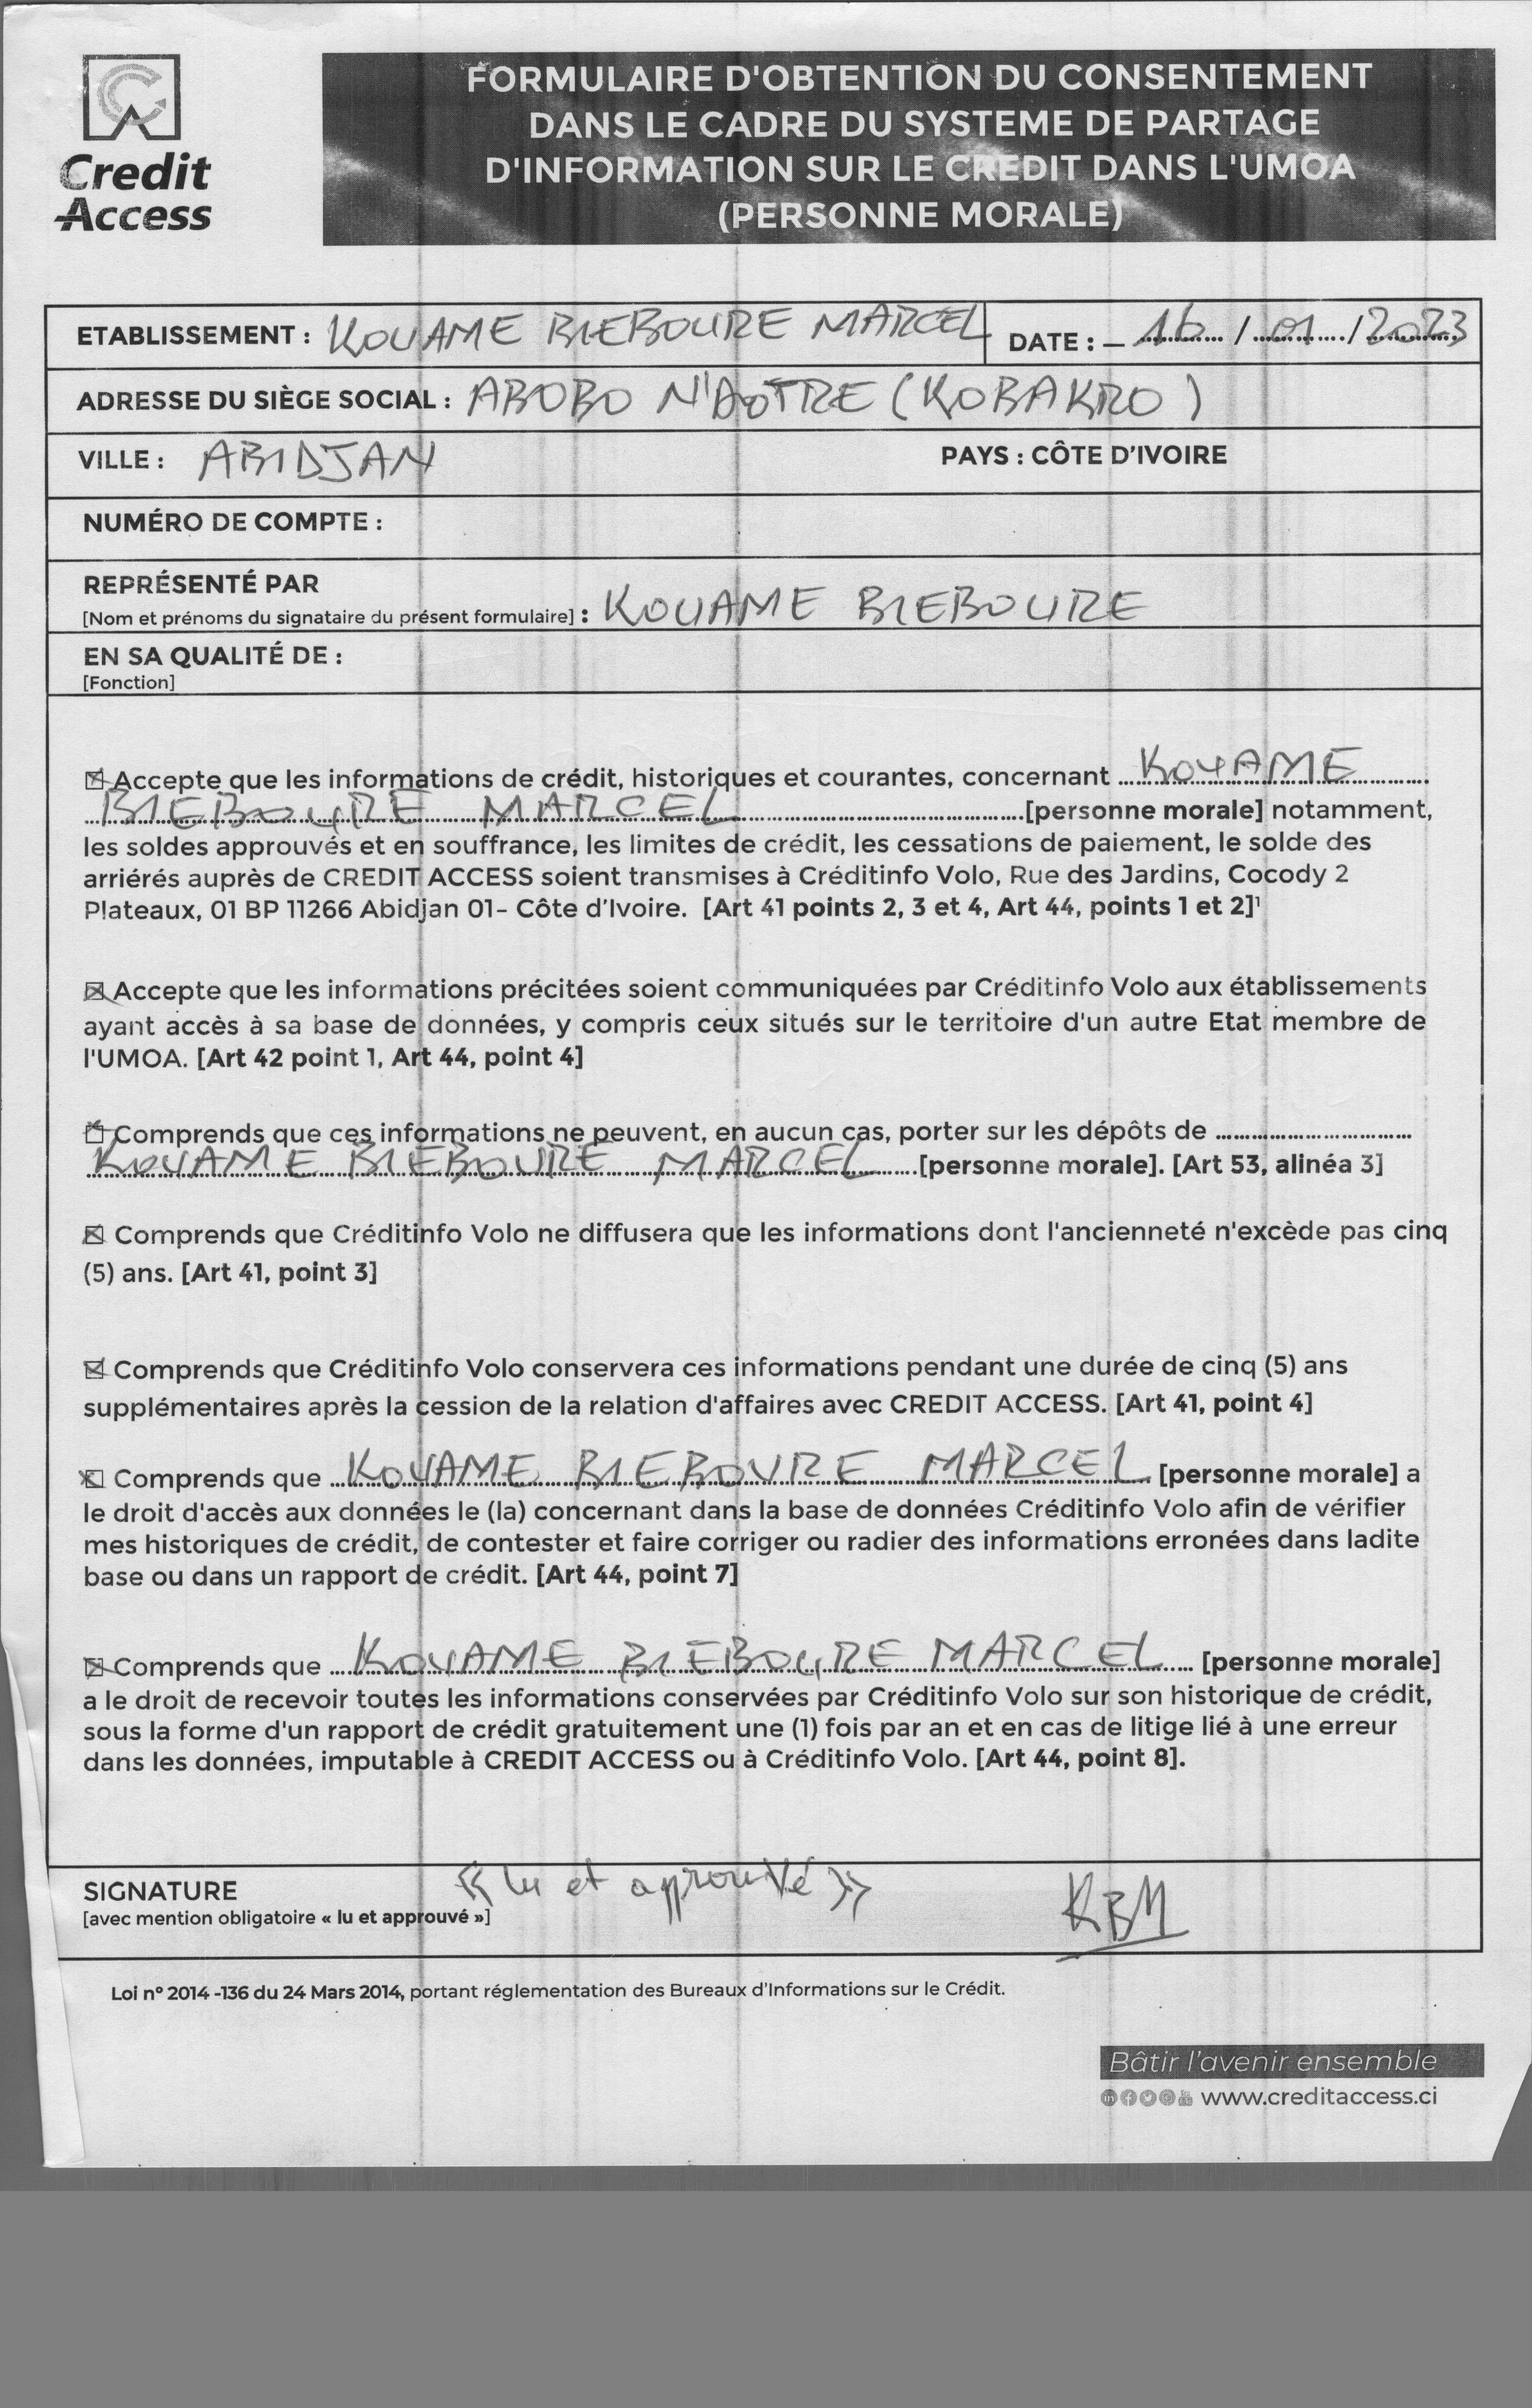 Credit
Access
FORMULAIRE D'OBTENTION DU CONSENTEMENT
DANS LE CADRE DU SYSTEME DE PARTAGE
D'INFORMATION SUR LE CREDIT DANS L'UMOA
(PERSONNE MORALE)
ETABLISSEMENT : KOUAME BIEBOURE MARCEL DATE : – 16 / 01 / 2023
ADRESSE DU SIÈGE SOCIAL : ABOBO N'DOTRE (KOBAKRO)
VILLE : ABIDJAN PAYS : CÔTE D'IVOIRE
NUMÉRO DE COMPTE :
REPRÉSENTÉ PAR
[Nom et prénoms du signataire du présent formulaire] : KOUAME BIEBOURE
EN SA QUALITÉ DE :
[Fonction]
Accepte que les informations de crédit, historiques et courantes, concernant KOUAME
BIEBOURE MARCEL [personne morale] notamment,
les soldes approuvés et en souffrance, les limites de crédit, les cessations de paiement, le solde des
arriérés auprès de CREDIT ACCESS soient transmises à Créditinfo Volo, Rue des Jardins, Cocody 2
Plateaux, 01 BP 11266 Abidjan 01- Côte d'Ivoire. [Art 41 points 2, 3 et 4, Art 44, points 1 et 2]¹
Accepte que les informations précitées soient communiquées par Créditinfo Volo aux établissements
ayant accès à sa base de données, y compris ceux situés sur le territoire d'un autre Etat membre de
l'UMOA. [Art 42 point 1, Art 44, point 4]
Comprends que ces informations ne peuvent, en aucun cas, porter sur les dépôts de
KOUAME BIEBOURE MARCEL [personne morale]. [Art 53, alinéa 3]
Comprends que Créditinfo Volo ne diffusera que les informations dont l'ancienneté n'excède pas cinq
(5) ans. [Art 41, point 3]
Comprends que Créditinfo Volo conservera ces informations pendant une durée de cinq (5) ans
supplémentaires après la cession de la relation d'affaires avec CREDIT ACCESS. [Art 41, point 4]
Comprends que KOUAME BIEBOURE MARCEL [personne morale] a
le droit d'accès aux données le (la) concernant dans la base de données Créditinfo Volo afin de vérifier
mes historiques de crédit, de contester et faire corriger ou radier des informations erronées dans ladite
base ou dans un rapport de crédit. [Art 44, point 7]
Comprends que KOUAME BIEBOURE MARCEL [personne morale]
a le droit de recevoir toutes les informations conservées par Créditinfo Volo sur son historique de crédit,
sous la forme d'un rapport de crédit gratuitement une (1) fois par an et en cas de litige lié à une erreur
dans les données, imputable à CREDIT ACCESS ou à Créditinfo Volo. [Art 44, point 8].
SIGNATURE « lu et approuvé » KBM
[avec mention obligatoire « lu et approuvé »]
Loi n° 2014 -136 du 24 Mars 2014, portant réglementation des Bureaux d'Informations sur le Crédit.
Bâtir l'avenir ensemble
www.creditaccess.ci